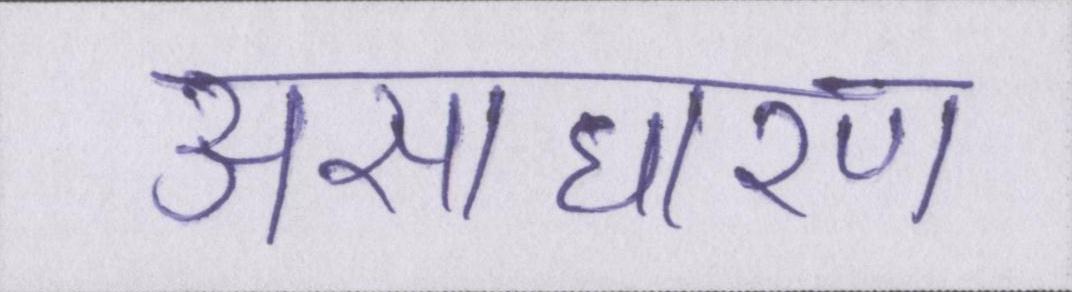 असाधारण